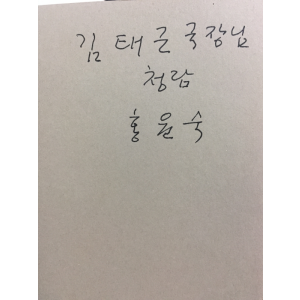 김태근국장님
청람
홍윤숙